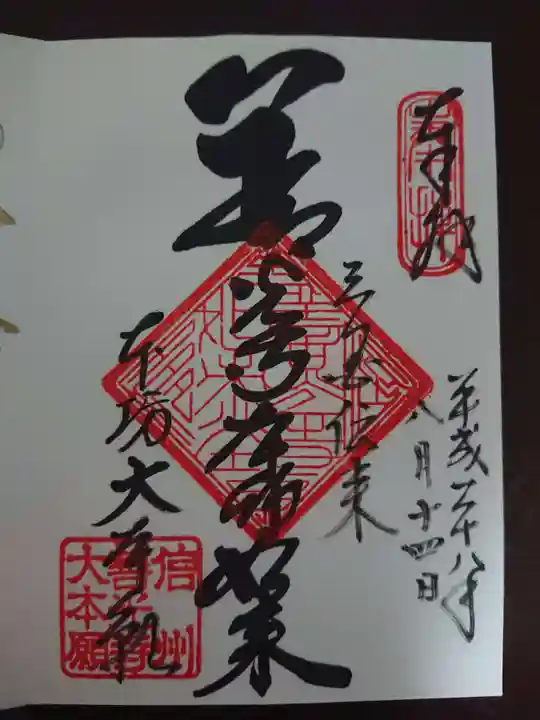 奉拝
平成廿八年
八月十四日
三国伝来
善光寺本師如来
本坊大本願
信州
善光寺
大本願